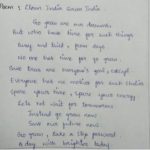 Poem : Clean India Green India
Go green are our demands
But who have time for such things
Busy and tired, poem says
No one has time for go green.
Save trees are everyone's goal, except
Everyone has no motive for such thoughts
Spare your time, spare your energy
Lets not wait for tomorrow
Instead go green now
Save our future now.
Go green, take a step forward
A day, with brighter today